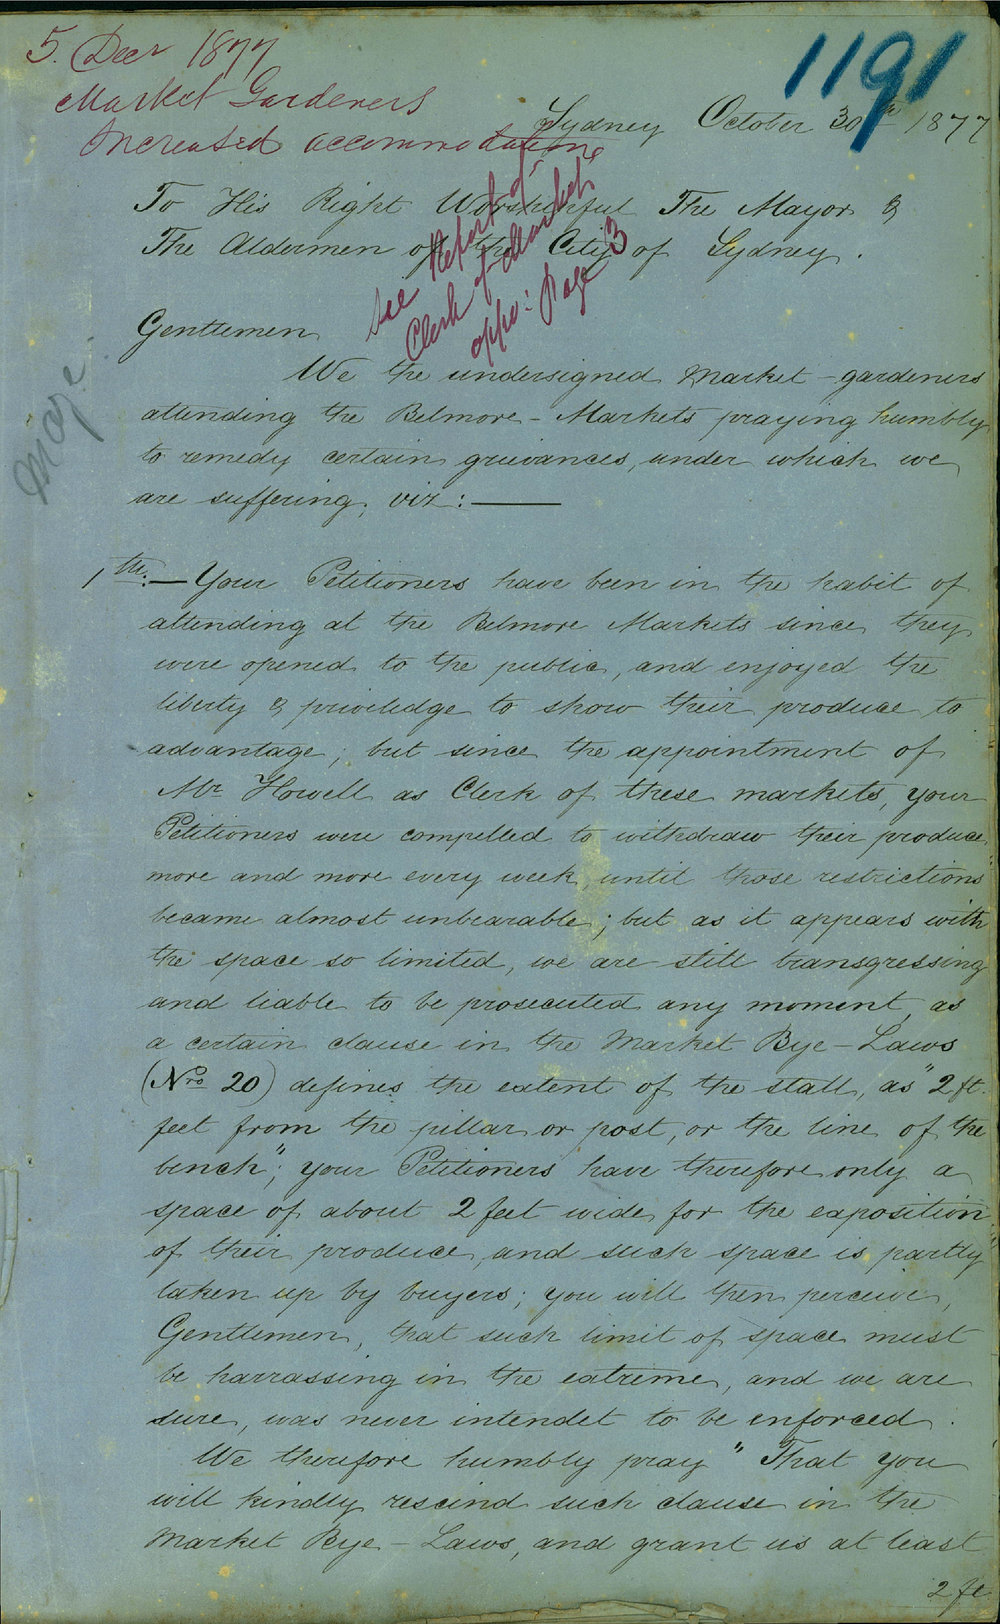 5. Decr 1877
Market Gardeners
Increased accommodations
1191
Sydney October 30th 1877
To His Right Worshipful The Mayor &
The Aldermen of the City of Sydney.
See Report of
Clerk of Market
oppo: Page 3
Gentlemen
We the undersigned Market-gardeners
attending the Belmore-Markets praying humbly
to remedy certain grievances, under which we
are suffering; viz:—
1th.—Your Petitioners have been in the habit of
attending at the Belmore Markets since they
were opened to the public, and enjoyed the
liberty & priviledge to show their produce to
advantage; but since the appointment of
Mr Howell as Clerk of these markets, your
Petitioners were compelled to withdraw their produce
more and more every week, until those restrictions
became almost unbearable; but as it appears with
the space so limited, we are still transgressing
and liable to be prosecuted any moment, as
a certain clause in the Market Bye-Laws
(Nro 20) defines the extent of the stall, as "2 ft.
feet from the pillar or post, or the line of the
bench"; your Petitioners have therefore only a
space of about 2 feet wide for the exposition
of their produce, and such space is partly
taken up by buyers; you will then perceive,
Gentlemen, that such limit of space must
be harrassing in the extreme, and we are
sure, was never intendet to be enforced.
We therefore humbly pray "That you
will kindly rescind such clause in the
Market Bye-Laws, and grant us at least
2 ft